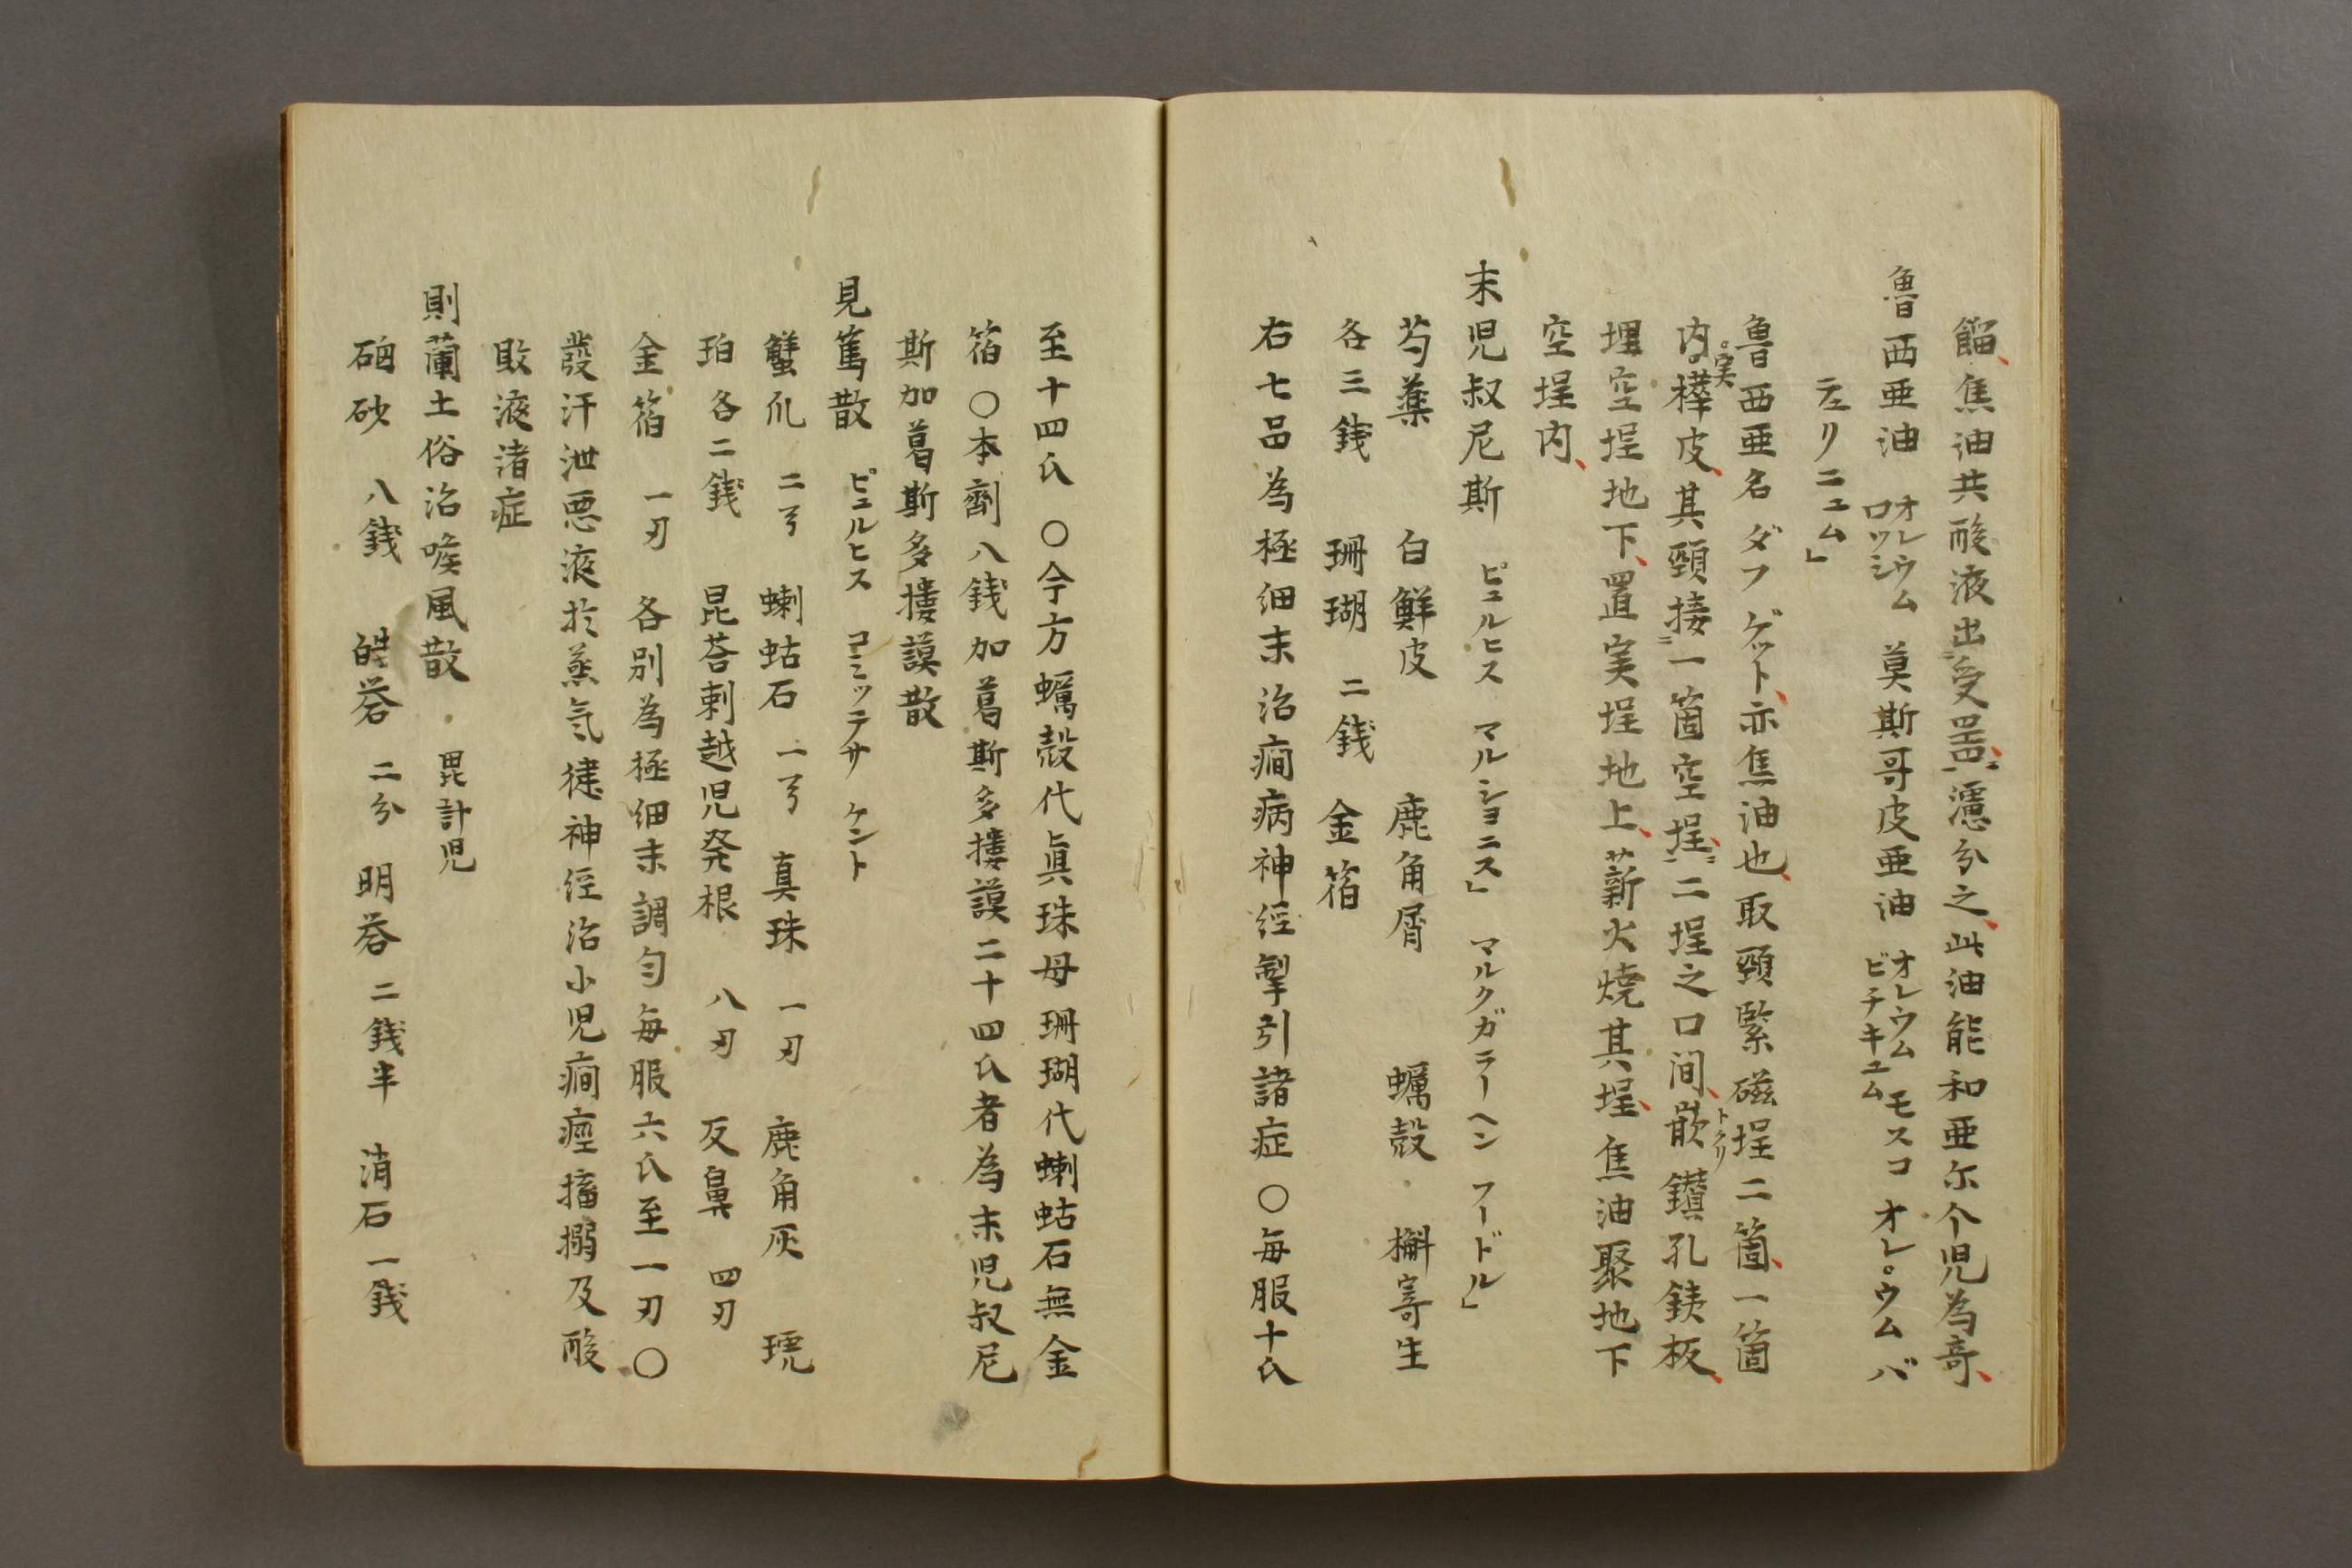 餾焦油共酸液出受噐濾分之此油能和亜尓个児為奇
魯西亜油 オレウム ロッシ 莫斯哥皮亜油 オレウム モスコ ビチキュム オレウム バ
左リニュム」
魯西亜名ダフゲット亦焦油也取頸緊磁埕二箇一箇 トクリ
内実樺皮其頸接一箇空埕二埕之口间嵌鑚孔銕板
埋空埕地下置実埕地上薪火焼其埕焦油聚地下
空埕内
末児叔尼斯 ピュルヒス マルショニス」 マルクガラーヘン フードル」
芍薬 白鮮皮 鹿角屑 蠣殻 槲寄生
各三銭 珊瑚 二銭 金箔
右七品為極细末治癇病神经掣引諸症〇毎服十氏
至十四氏〇今方蠣殻代眞珠母珊瑚代蝲蛄石無金
箔〇本劑八銭加葛斯多摟謨二十四氏者為末児叔尼
斯加葛斯多摟謨散
見篤散 ピュルヒス コミッテサ ケント
蟹爪 二弓 蝲蛄石 一弓 真珠 一刃 鹿角灰 琥
珀 各二銭 昆荅剌越児発根 八刃 反鼻 四刃
金箔 一刃 各別為極细末調匀毎服六氏至一刃〇
發汗泄悪液於蒸気健神经治小児癇痙搐搦及酸
敗液渚症
則蘭土俗治喉風散 毘計児
硇砂 八銭 皓礬 二分 明礬 二銭半 消石 一銭